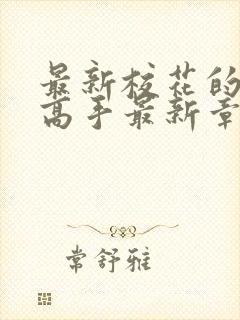 最新校花的
高手最新章
常舒雅